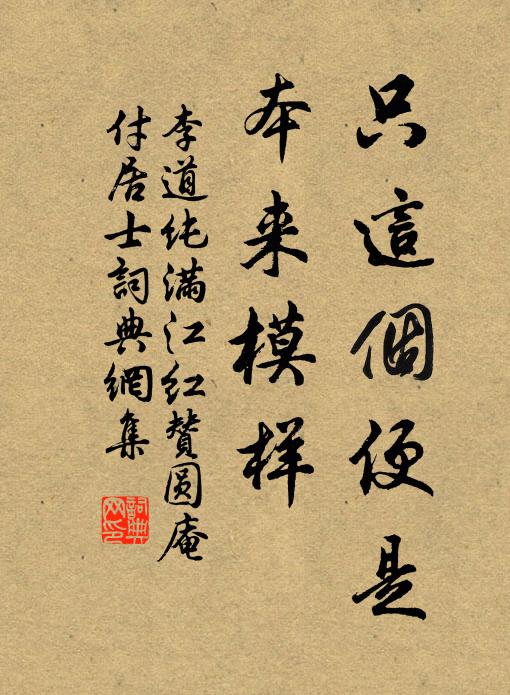 只這個便是
本来模样
李道纯满江红赞圆庵
付居士詞典網集
詞典
网印